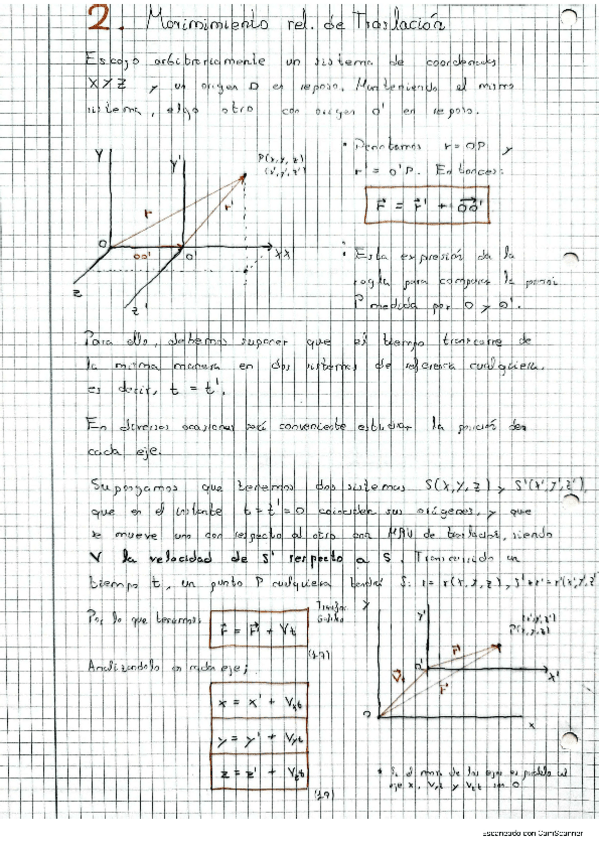 2. Morimimiento rel. de Traslación
Escojo arbitrariamente un sistema de coordenadas
XYZ y un origen O en reposo. Manteniendo el mismo
sistema, elijo otro con origen O' en reposo.
Y
Y'
P(x,y,z)
(x',y',z')
r
r'
O
OO'
O'
XX
Z
Z'
• Denotamos r = OP y
r' = O'P. Entonces:
r = r' + OO'
• Esta expresión da la
regla para comparar la posi
P medida por O y O'.
Para ello, debemos suponer que el tiempo transcurre de
la misma manera en dos sistemas de referencia cualquiera,
es decir, t = t'.
En diversas ocasiones será conveniente estudiar la posición de
cada eje.
Supongamos que tenemos dos sistemas S(x,y,z) y S'(x',y',z'),
que en el instante t = t' = 0 coinciden sus orígenes, y que
se mueve uno con respecto al otro con de traslación, siendo
V la velocidad de S' respecto a S. Transcurrido un
tiempo t, un punto P cualquiera tendrá S: r = r(x,y,z), S' r' = r'(x',y',z'
Por lo que tenemos:
r = r' + Vt
Analizándolo en cada eje;
x = x' + Vxt
y = y' + Vyt
z = z' + Vzt
Y
Y'
(x',y',z')
P(x,y,z)
O'
r'
r
X'
x
Escaneado con CamScanner